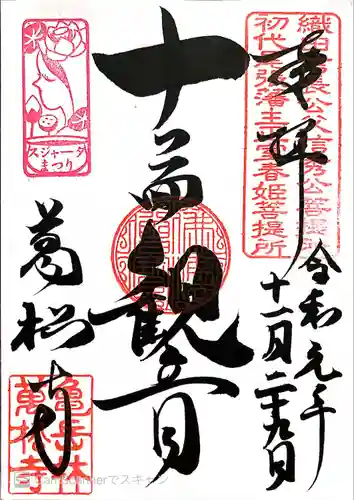 奉拝
織田信長公父信秀公菩提
初代尾張藩主正室春姫菩提所
令和元年
十一月二十九日
十一面観音
スジャータ
まつり
萬松寺
亀岳林
萬松寺
CamScannerでスキャン